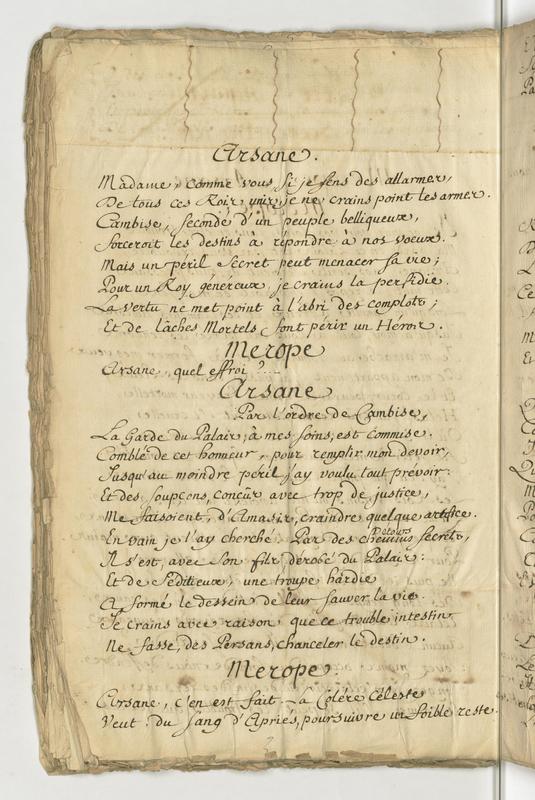 Arsane.
Madame, comme vous si je sens des allarmes,
De tous ces Rois unis je ne crains point les armes.
Cambise, secondé d'un peuple belliqueux,
Forceroit les destins à répondre à nos voeux.
Mais un péril secret peut menacer sa vie;
Pour un Roy génereux, je crains la perfidie.
La vertu ne met point à l'abri des complots;
Et de lâches Mortels font périr un Héros.
Merope
Arsane, quel effroi ?...
Arsane
Par l'ordre de Cambise,
La Garde du Palais, à mes soins, est commise.
Comblé de cet honneur, pour remplir mon devoir,
Jusqu'au moindre péril j'ay voulu tout prévoir:
Et des soupçons, conçûs avec trop de justice,
Me faisoient, d'Amasis, craindre quelque artifice.
En vain je l'ay cherché. Par des détours secrets,
Il s'est, avec son fils, dérobé du Palais:
Et de séditieux, une troupe hardie
A formé le dessein de leur sauver la vie.
Je crains avec raison que ce trouble intestin
Ne fasse, des Persans, chanceler le destin.
Merope
Arsane, c'en est fait. La Colére Céleste
Veut, du sang d'Apriés, poursuivre un foible reste.